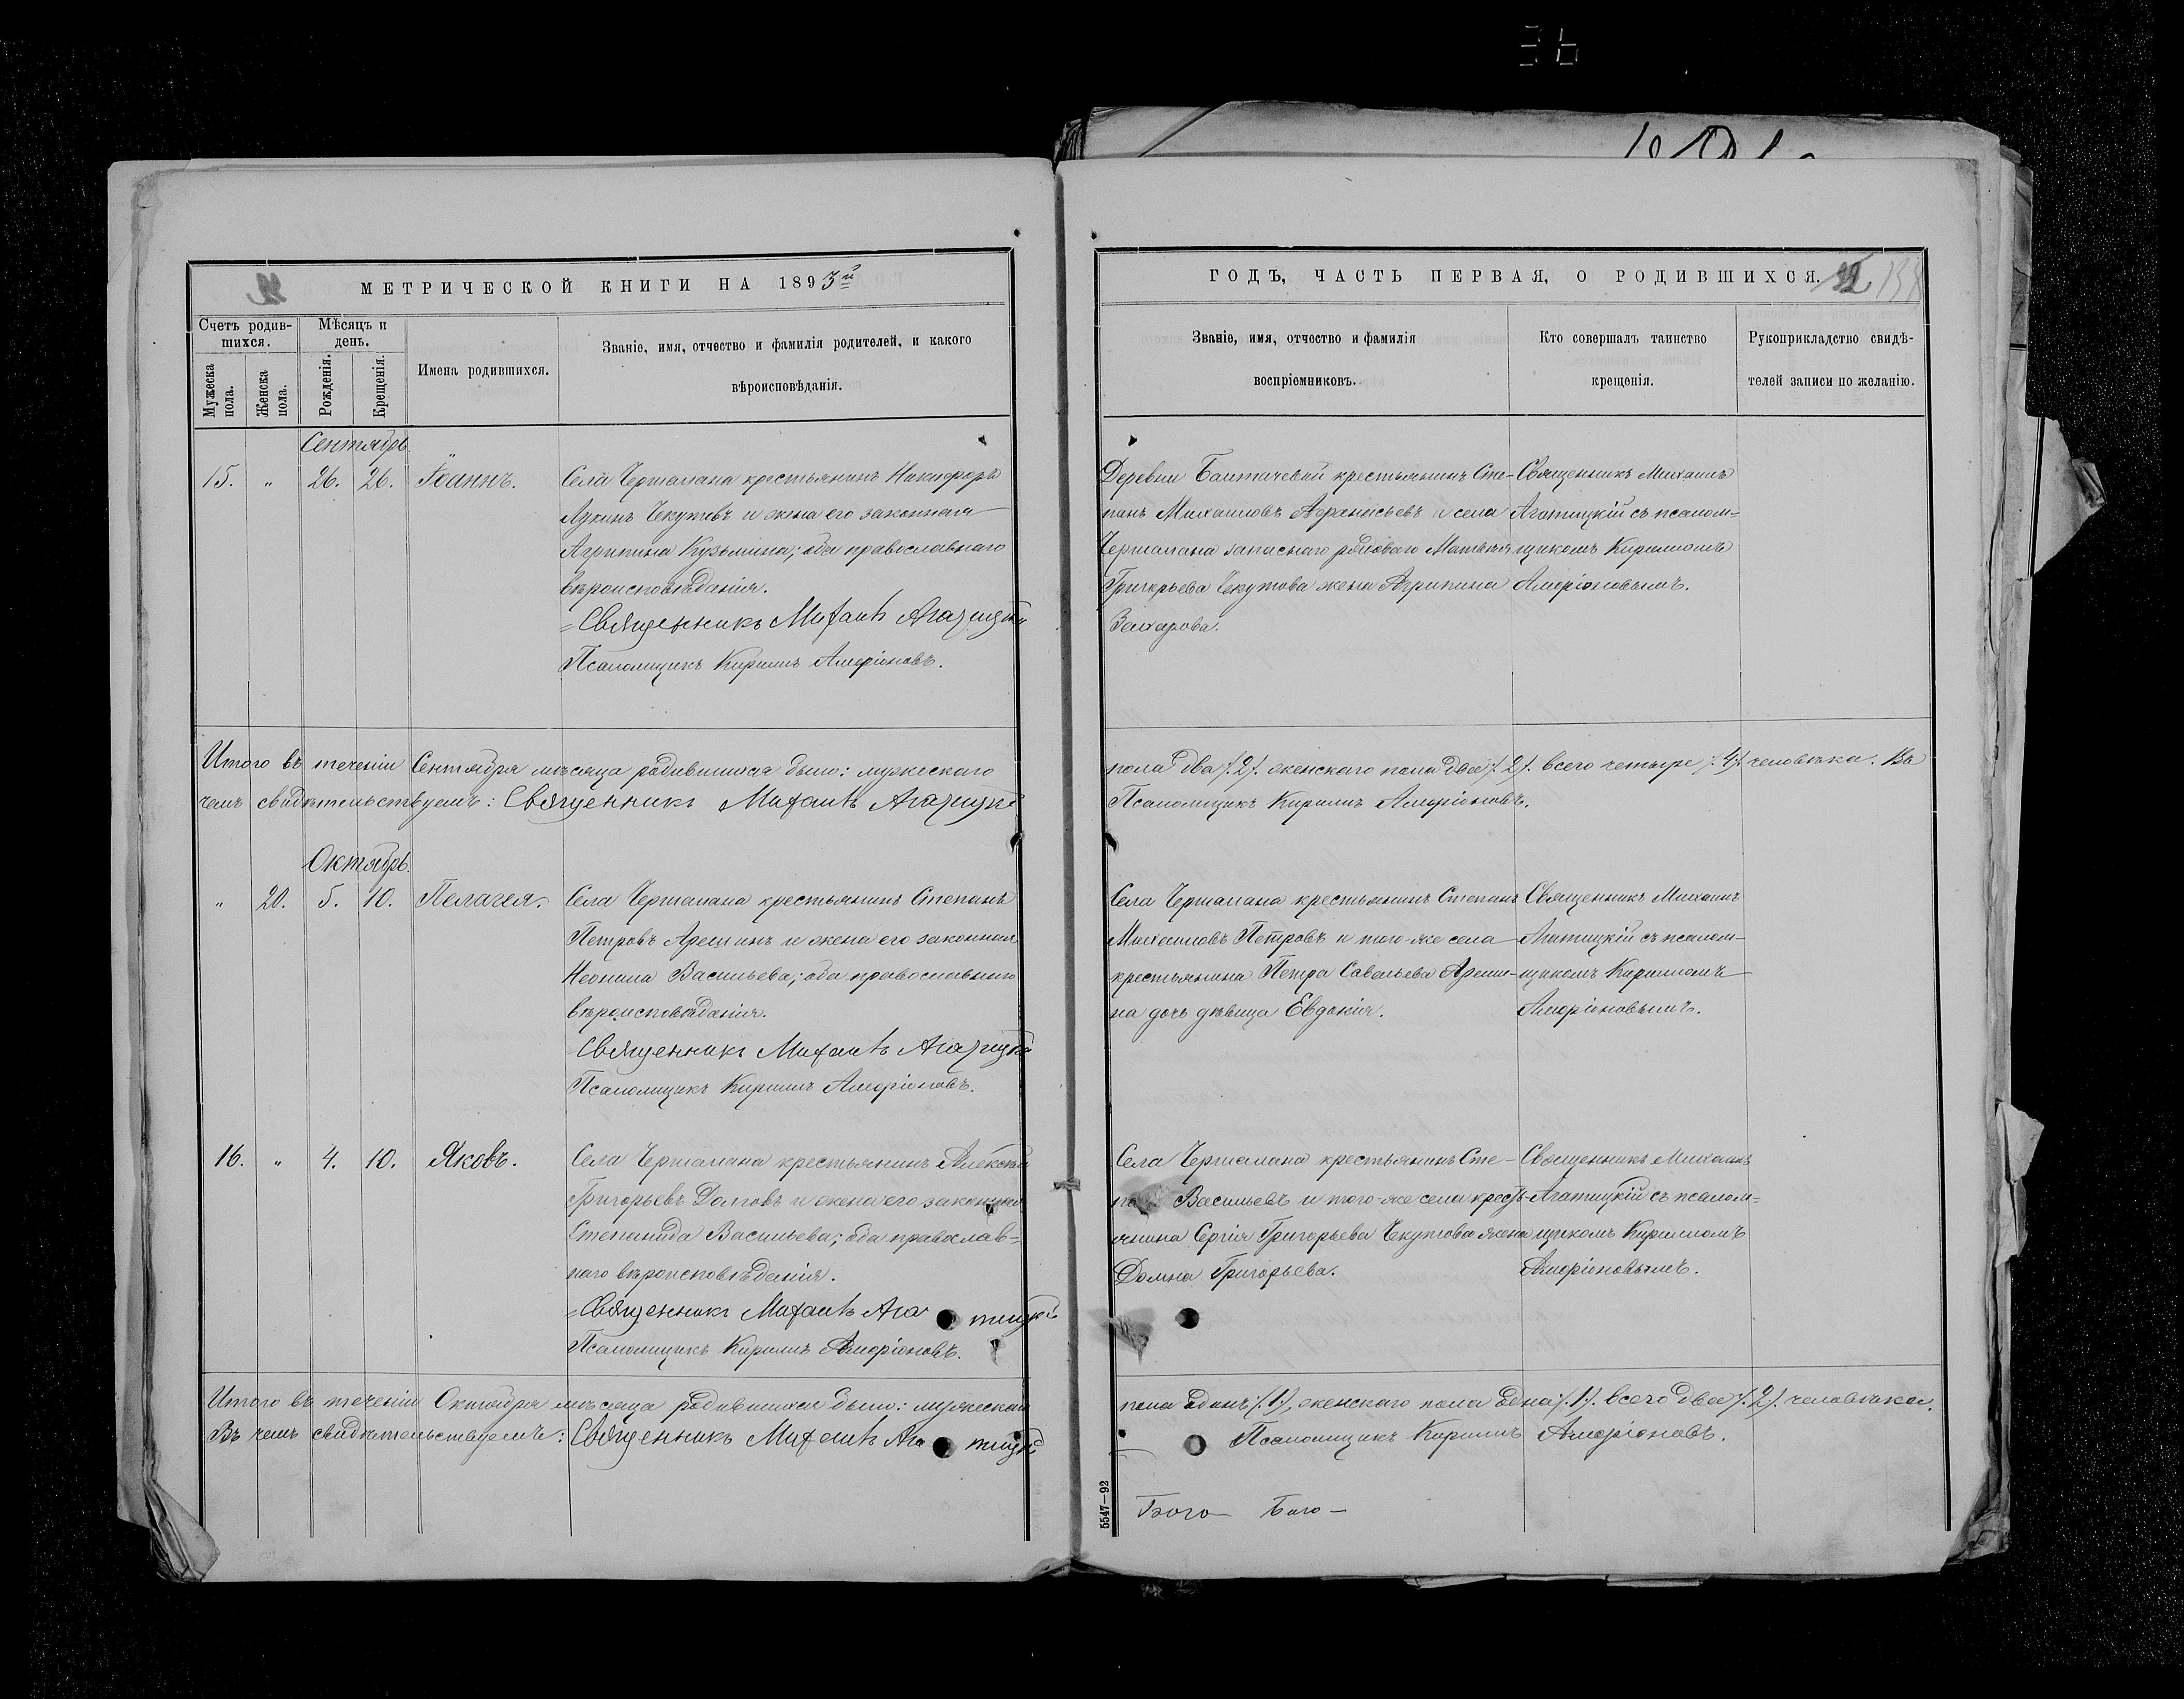 МЕТРИЧЕСКОЙ КНИГИ НА 1893й
Счетъ родив-
шихся.
Мѣсяцъ и
день.
Мужеска
пола.
Женска
пола.
Рожденія.
Крещенія.
Имена родившихся.
Званіе, имя, отчество и фамилія родителей, и какого
вѣроисповѣданія.
Сентябрь
15. „ 26. 26. Іоаннъ. Села Чершалана крестьянинъ Никифоръ
Лукинъ Чекутовъ и жена его законная
Агрипина Кузьмина; оба православнаго
вѣроисповѣданія.
Священникъ Михаилъ Агатицкій
Псаломщикъ Кириллъ Аморіоновъ.
Итого въ теченіи Сентября мѣсяца родившихся было: мужескаго
чемъ свидѣтельствуемъ: Священникъ Михаилъ Агатицкій
Октябрь.
„ 20. 5. 10. Пелагея. Села Чершалана крестьянинъ Степанъ
Петровъ Арешинъ и жена его законная
Неонила Васильева; оба православнаго
вѣроисповѣданія.
Священникъ Михаилъ Агатицкій
Псаломщикъ Кириллъ Аморіоновъ.
16. „ 4. 10. Яковъ. Села Чершалана крестьянинъ Алексѣй
Григорьевъ Долговъ и жена его законная
Степанида Васильева; оба православ-
наго вѣроисповѣданія.
Священникъ Михаилъ Агатицкій
Псаломщикъ Кириллъ Аморіоновъ.
Итого въ теченіи Октября мѣсяца родившихся было: мужескаго
Въ чемъ свидѣтельствуемъ: Священникъ Михаилъ Агатицкій
ГОДЪ, ЧАСТЬ ПЕРВАЯ, О РОДИВШИХСЯ.
Званіе, имя, отчество и фамилія
воспріемниковъ.
Кто совершалъ таинство
крещенія.
Рукоприкладство свидѣ-
телей записи по желанію.
Деревни крестьянинъ Сте- Священникъ Михаилъ
панъ Михаиловъ Афанасьевъ и села Агатицкій съ псалом-
Чершалана запаснаго рядоваго Матвѣя щикомъ Кирилломъ
Григорьева Чекутова жена Агрипина Аморіоновымъ.
Захарова.
пола два /.2/. женскаго пола две /.2/. всего четыре /.4/. человѣка. Въ
Псаломщикъ Кириллъ Аморіоновъ.
Села Чершалана крестьянинъ Степанъ Священникъ Михаилъ
Михаиловъ Петровъ и того-же села Агатицкій съ псалом-
крестьянина Петра Савельева Ареши- щикомъ Кирилломъ
на дочь дѣвица Евдокія. Аморіоновымъ.
Села Чершалана крестьянинъ Сте- Священникъ Михаилъ
Васильевъ и того-же села кресть- Агатицкій съ псалом-
янина Сергія Григорьева Чекутова жена щикомъ Кирилломъ
Домна Григорьева. Аморіоновымъ.
пола одинъ /.1/, женскаго пола одна /.1/. всего два /.2/. человѣка.
Псаломщикъ Кириллъ Аморіоновъ.
5547—92